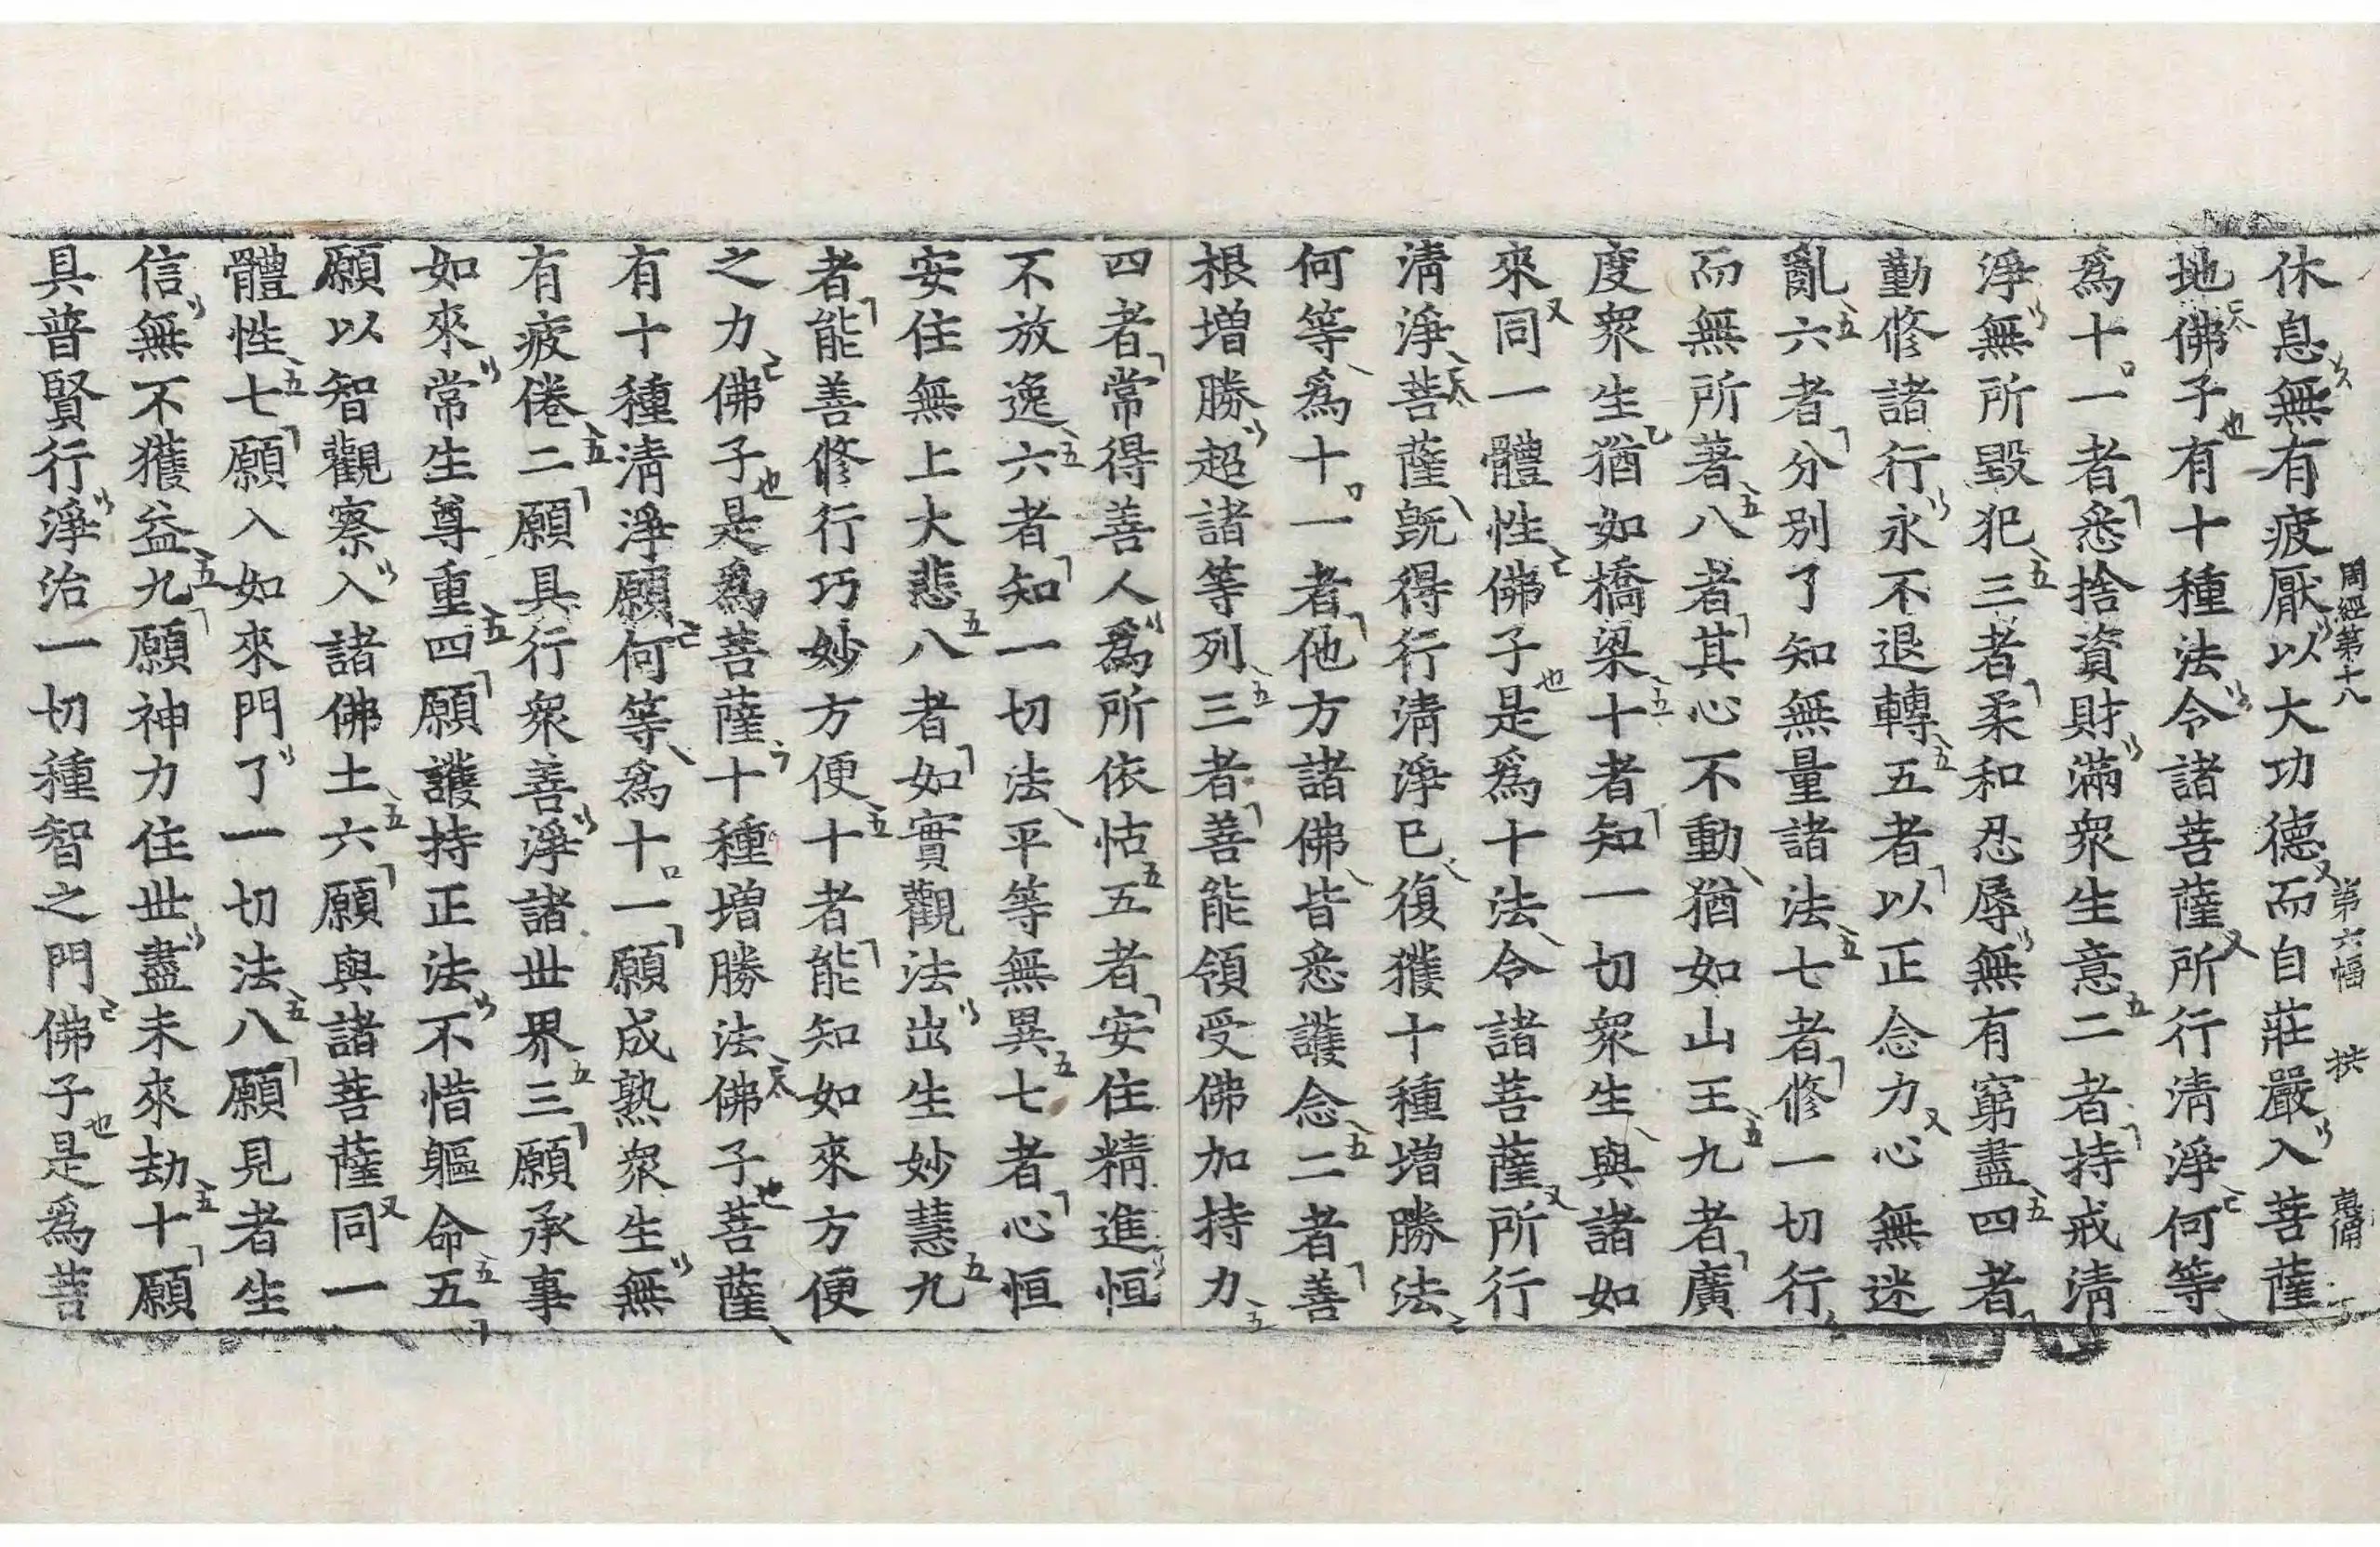 休息無有疲厭以大功德而自莊嚴入菩薩
周經第十八 第六幅
地佛子有十種法令諸菩薩所行清淨何等
爲十一者悉捨資財滿衆生意二者持戒清
淨無所毀犯三者柔和忍辱無有窮盡四者
勤修諸行永不退轉五者以正念力心無迷
亂六者分別了知無量諸法七者修一切行
而無所著八者其心不動猶如山王九者廣
度衆生猶如橋梁十者知一切衆生與諸如
來同一體性佛子是爲十法令諸菩薩所行
清淨菩薩旣得行清淨已復獲十種增勝法
何等爲十一者他方諸佛皆悉護念二者善
根增勝超諸等列三者善能領受佛加持力
四者常得善人爲所依怙五者安住精進恒
不放逸六者知一切法平等無異七者心恒
安住無上大悲八者如實觀法出生妙慧九
者能善修行巧妙方便十者能知如來方便
之力佛子是爲菩薩十種增勝法佛子菩薩
有十種清淨願何等爲十一願成熟衆生無
有疲倦二願具行衆善淨諸世界三願承事
如來常生尊重四願護持正法不惜軀命五
願以智觀察入諸佛土六願與諸菩薩同一
體性七願入如來門了一切法八願見者生
信無不獲益九願神力住世盡未來劫十願
具普賢行淨治一切種智之門佛子是爲菩